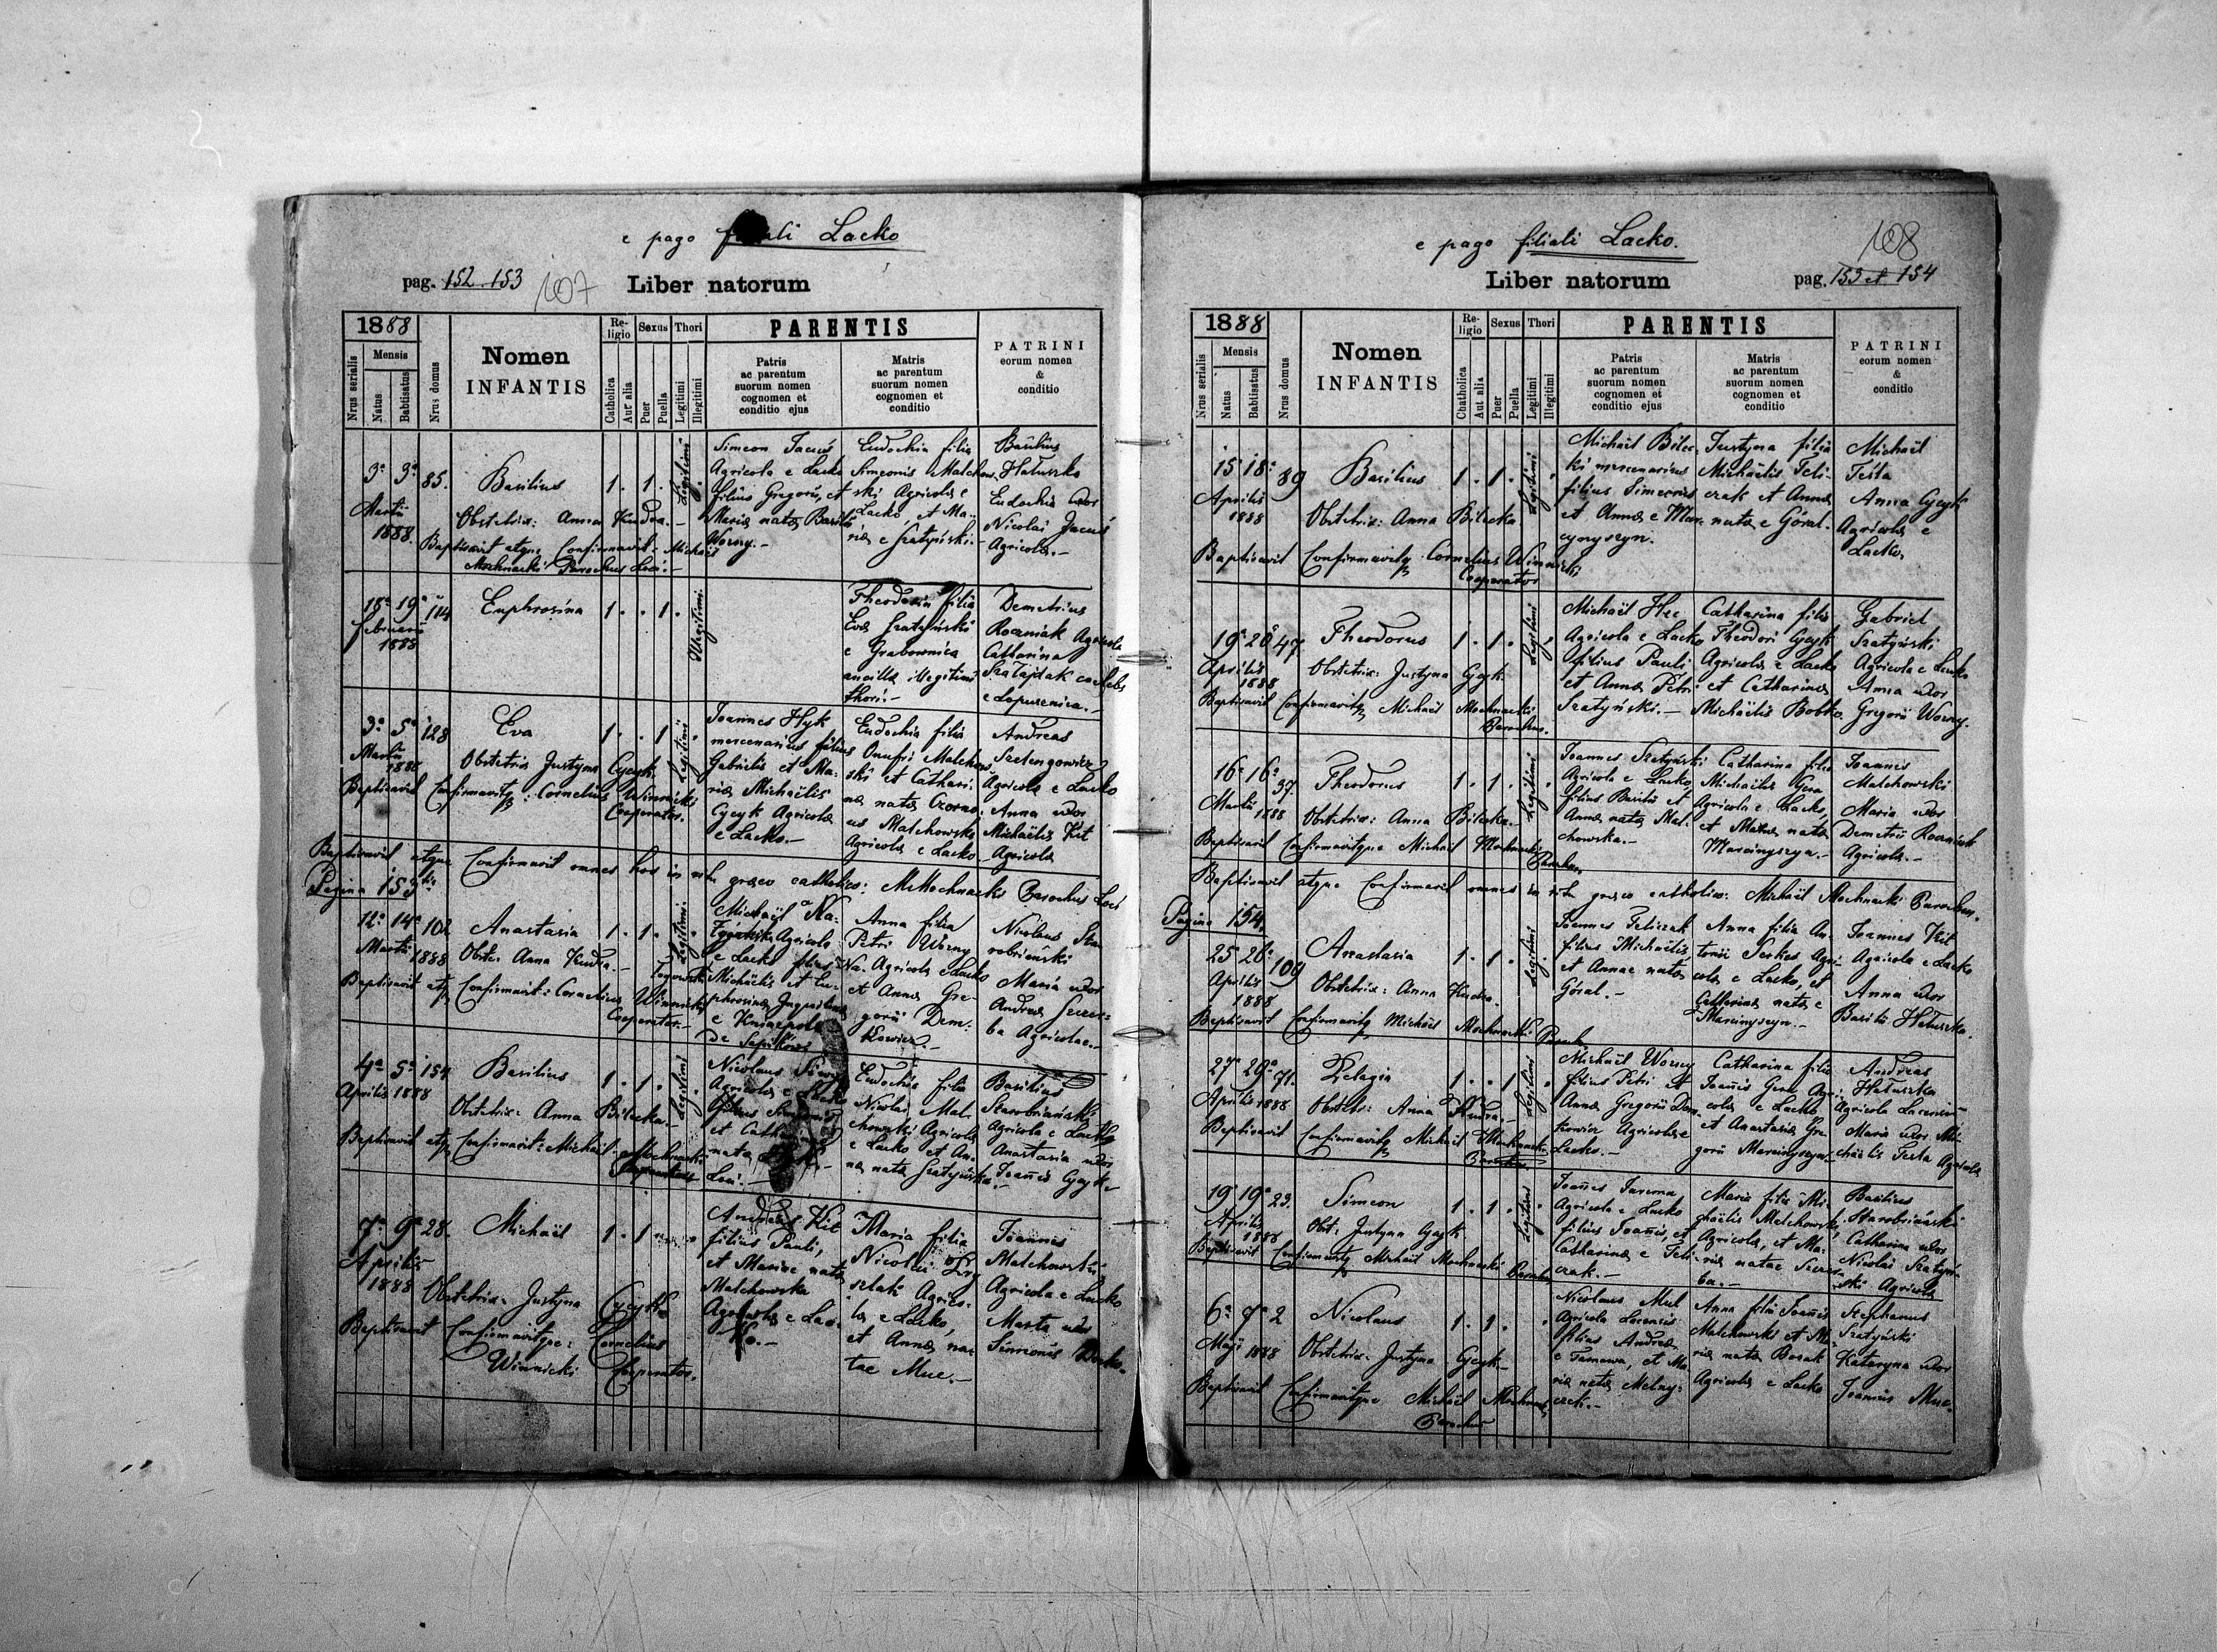 e pago filiali Lacko
pag. 152 153
107
Liber natorum
1888
Nrus serialis
Mensis
Natus
Babtisatus
Nrus domus
Nomen
INFANTIS
Religio
Catholica
Aut alia
Sexus
Puer
Puella
Thori
Legitimi
Illegitimi
PARENTIS
Patris
ac parentum
suorum nomen
cognomen et
conditio ejus
Matris
ac parentum
suorum nomen
cognomen et
conditio
PATRINI
eorum nomen
&
conditio
3a 3a 85. Basilius 1. 1. Legitimi
Martii
1888.
Obstetrix: Anna Kudra.-
Baptisavit atque Confirmavit - Michael
Mochnacki Parochus Loci.-
Simeon Jacuś
Agricola e Lacko
filius Gregorii, et
Maria nata Basilii
Worny.-
Eudochia filia
Simeonis Malchow
ski Agricola e
Lacko, et Ma-
ria e Szatyński.-
Basilius
Hałuszko
Eudochia uxor
Nicolai Jacuś
Agricola.-
18a 19a 114 Euphrosina 1. . 1. Illegitimi.
Februarii
1888
Theodosia filia
Eva Szatyński
e Grabownica
ancilla illegitimi
thori.-
Demetrius
Roczniak Agricola
Catharina
e Lopuznica.-
3a 5a 128 Eva 1. . 1 Legitimi
Martii
1888
Obstetrix Justyna Gycyk.
Baptisavit Confirmavitq: Cornelius Winnicki
Cooperator.
Joannes Hyk
mercenarius filius
Gabrielis et Ma-
ria Michaëlis
Gycyk Agricola
e Lacko.-
Eudochia filia
Onufri Malchow
ski et Cathari-
na nata
Malchowski
Agricola e Lacko
Andreas
Szelengowicz
Agricola e Lacko
Anna uxor
Michaëlis Kit
Agricola
Baptisavit atque Confirmavit omnes hos in ritu graeco catholico: MMochnacki Parochus Loci
Pagina 153
12a 14a 102 Anastasia 1. 1. Legitimi.
Martii 1888
Obste. Anna Kudra.-
Baptisavit atq Confirmavit: Cornelius Winnicki
Cooperator.-
Michaël Na-
Agricola
e Lacko filius
Michaëlis et Eu-
phrosina
Anna filia
Petri Worny
Agricola e Lacko
et Anna Gre-
gorii Dem-
kowicz.-
Nicolaus Sta-
robriański
Maria uxor
Andrea Szczer-
ba Agricolae.-
4a 5a 154 Basilius 1. 1. Legitimi
Aprilis 1888
Obstetrix: Anna Bilecka.-
Baptisavit atq Confirmavit: Michaël Mochnacki
Loci.-
Nicolaus
Agricola e Lacko
filius Simeonis
et Catharina
nata
Eudochia filia
Nicolai Mal-
chowski Agricola
e Lacko et An-
na nata Szatyńska.-
Basilius
Starobriański
Agricola e Lacko
Anastasia uxor
Joannis Gycyk.
7a 9a 28. Michaël 1. 1
Aprilis
1888
Obstetrix: Justyna Gycyk
Baptisavit Confirmavitque: Cornelius
Winnicki Cooperator.
Andreas Kit
filius Pauli,
et Mariae nata
Malchowska
Agricola e Lac-
ko.-
Maria filia
Nicolai
Agrico-
la e Lacko,
et Anna na-
tae Muc.-
Joannes
Malchowski
Agricola e Lacko
Marta uxor
Simeonis
e pago filiali Lacko.
108
Liber natorum
pag. 153 et 154
1888
Nrus serialis
Mensis
Natus
Babtisatus
Nrus domus
Nomen
INFANTIS
Religio
Chatholica
Aut alia
Sexus
Puer
Puella
Thori
Legitimi
Illegitimi
PARENTIS
Patris
ac parentum
suorum nomen
cognomen et
conditio ejus
Matris
ac parentum
suorum nomen
cognomen et
conditio
PATRINI
eorum nomen
&
conditio
15 18a 89 Basilius 1. 1. Legitimi
Aprilis
1888
Obstetrix: Anna Bilecka
Baptisavit Confirmavitq Cornelius Winnicki
Cooperator
Michaël Bilec-
ki mercenarius
filius Simeonis
et Anna e Mar-
cynyszyn.
Justyna filia
Michaëlis Teli-
czak et Anna
nata e Góral.
Michaël
Testa
Anna Gycyk
Agricola e
Lacko
19a 20a 47 Theodorus 1. 1. Legitimi
Aprilis
1888
Obstetrix: Justyna Gycyk
Baptisavit Confirmavitq Michaël Mochnacki
Parochus.
Michaël Hec
Agricola e Lacko
filius Pauli
et Anna Petri
Szatyński.-
Catharina filia
Theodori Gycyk
Agricola e Lacko
et Catharina
Michaëlis Bobko.
Gabriel
Szatyński
Agricola e Lacko
Anna uxor
Gregorii Worny.
16a 16a 37. Theodorus 1. 1. Legitimi
Martii
1888
Obstetrix: Anna Bilecka.-
Baptisavit Confirmavitque Michaël Mochnacki
Parochus
Joannes Szatyński
Agricola e Lacko,
filius Basilii et
Anna nata Mal-
chowska.-
Catharina filia
Michaëlis
Agricola e Lacko,
et Maria nata
Marcinyszyn.-
Joannes
Malchowski
Maria uxor
Demetrii Roczniak
Agricola.-
Baptisavit atque Confirmavit omnes in ritu graeco catholico: Michaël Mochnacki Parochus.
Pagina 154.
25 26a 109 Anastasia 1. 1. Legitimi
Aprilis
1888
Obstetrix: Anna Kudra.
Baptisavit Confirmavitq Michaël Mochnacki Paroch
Joannes Teliczak
filius Michaëlis,
et Annae nata
Góral.-
Anna filia An-
tonii Serkes Agri-
cola e Lacko, et
Catharina nata e
Marcinyszyn.-
Joannes Kit
Agricola e Lacko
Anna uxor
Basilii Hałuszko.
27a 29a 71. Pelagia 1. . 1 Legitimi
Aprilis 1888
Obstetr: Anna Kudra
Baptisavit Confirmavitq Michaël Mochnacki
Parochus
Michaël Worny
filius Petri et
Anna Gregorii Dem-
kowicz Agricola e
Lacko.-
Catharina filia
Joannis Agri-
cola e Lacko
et Anastasia Gre-
gorii Marcinyszyn
Andreas
Hałuszka
Agricola Lacensis
Maria uxor Mi-
chaëlis Testa Agricola
19 19a 23. Simeon 1. 1. Legitimi
Aprilis
1888
Obst: Justyna Gycyk
Baptisavit Confirmavitq Michaël Mochnacki Parochus
Joannes Jarema
Agricola e Lacko
filius Joannis, et
Catharina e Teli-
czak.-
Maria filia Mi-
chaëlis Malchowski,
Agricola, et Ma-
ria natae Szczer-
ba.-
Basilius
Starobriański
Catharina uxor
Nicolai Szatyń-
ski Agricola
6a 7a 2 Nicolaus 1. 1.
Maji 1888
Obstetrix: Justyna Gycyk
Baptisavit Confirmavitque Michaël Mochnacki
Parochus
Nicolaus Mul
Agricola Lacensis
filius Andrea
e Tarnawa, et Ma-
ria nata Melny-
czek.-
Anna filia Joannis
Malchowski et Ma-
ria nata Bosak
Agricola e Lacko
Stephanus
Szatyński
Kataryna uxor
Joannis Muc.